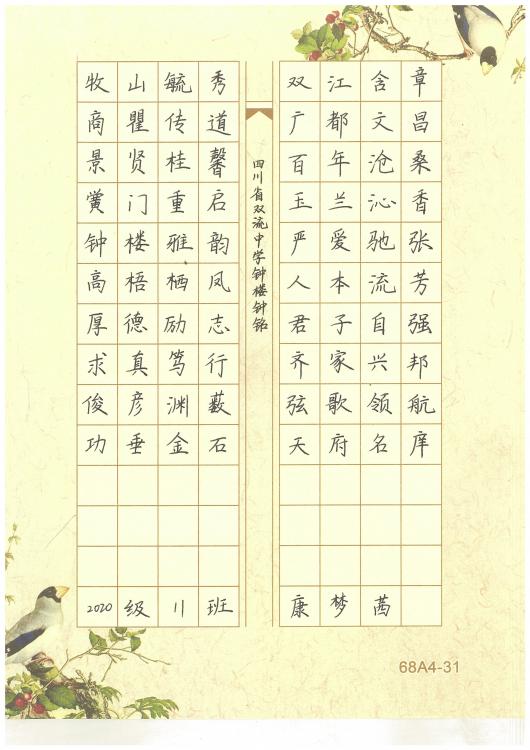 牧山毓秀
商瞿传道
景贤桂馨
黉门重启
钟楼雅韵
高梧栖凤
厚德励志
求真笃行
俊彦渊薮
功垂金石
2020级11班
四川省双流中学钟楼钟铭
双江含章
广都文昌
百年沧桑
玉兰沁香
严爱驰张
人本流芳
君子自强
齐家兴邦
弦歌领航
天府名庠
康梦茜
68A4-31